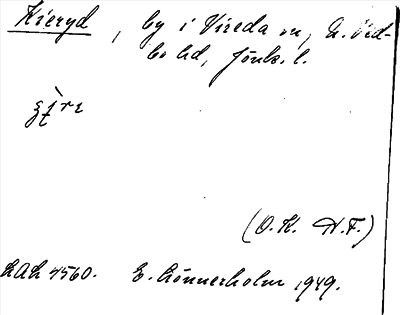 Kieryd, by i Vireda sn, N. Ved-
bo hd, Jönk. l.
(O.K. H.F.)
LAL 4560. E. Lönnerholm 1949.